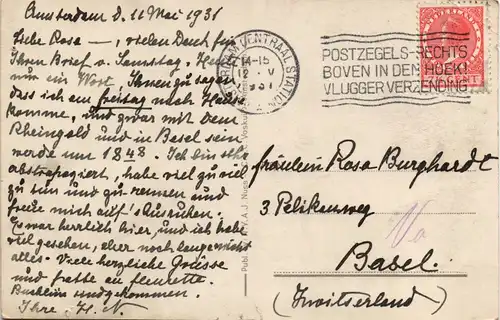 Amsterdam d. 12 Mai 1931
Liebe Rosa — , vielen Dank für
Ihren Brief v. Samstag. Heute
nur ein Wort Ihnen zu sagen
dass ich am freitag nach Hause
komme, und zwar mit dem
Rheingold und in Basel sein
werde um 1848. Ich bin sehr
abstrapaziert, habe viel zu viel
zu tun und zu rennen und
freue mich auf's Ausruhen.
Es war herrlich hier, und ich habe
viel gesehen, aber noch lange nicht
alles. Viele herzliche Grüsse
und an fleurette.
Büchlein und gekommen.
Ihre, H. N.
AMSTERDAM CENTRAAL STATION
14-15
12 V
1931
POSTZEGELS RECHTS
BOVEN IN DEN HOEK!
VLUGGER VERZENDING
NEDERLAND
CENT
fräulein Rosa Burghardt
3 Pelikanweg
Basel.
(Zwitserland)